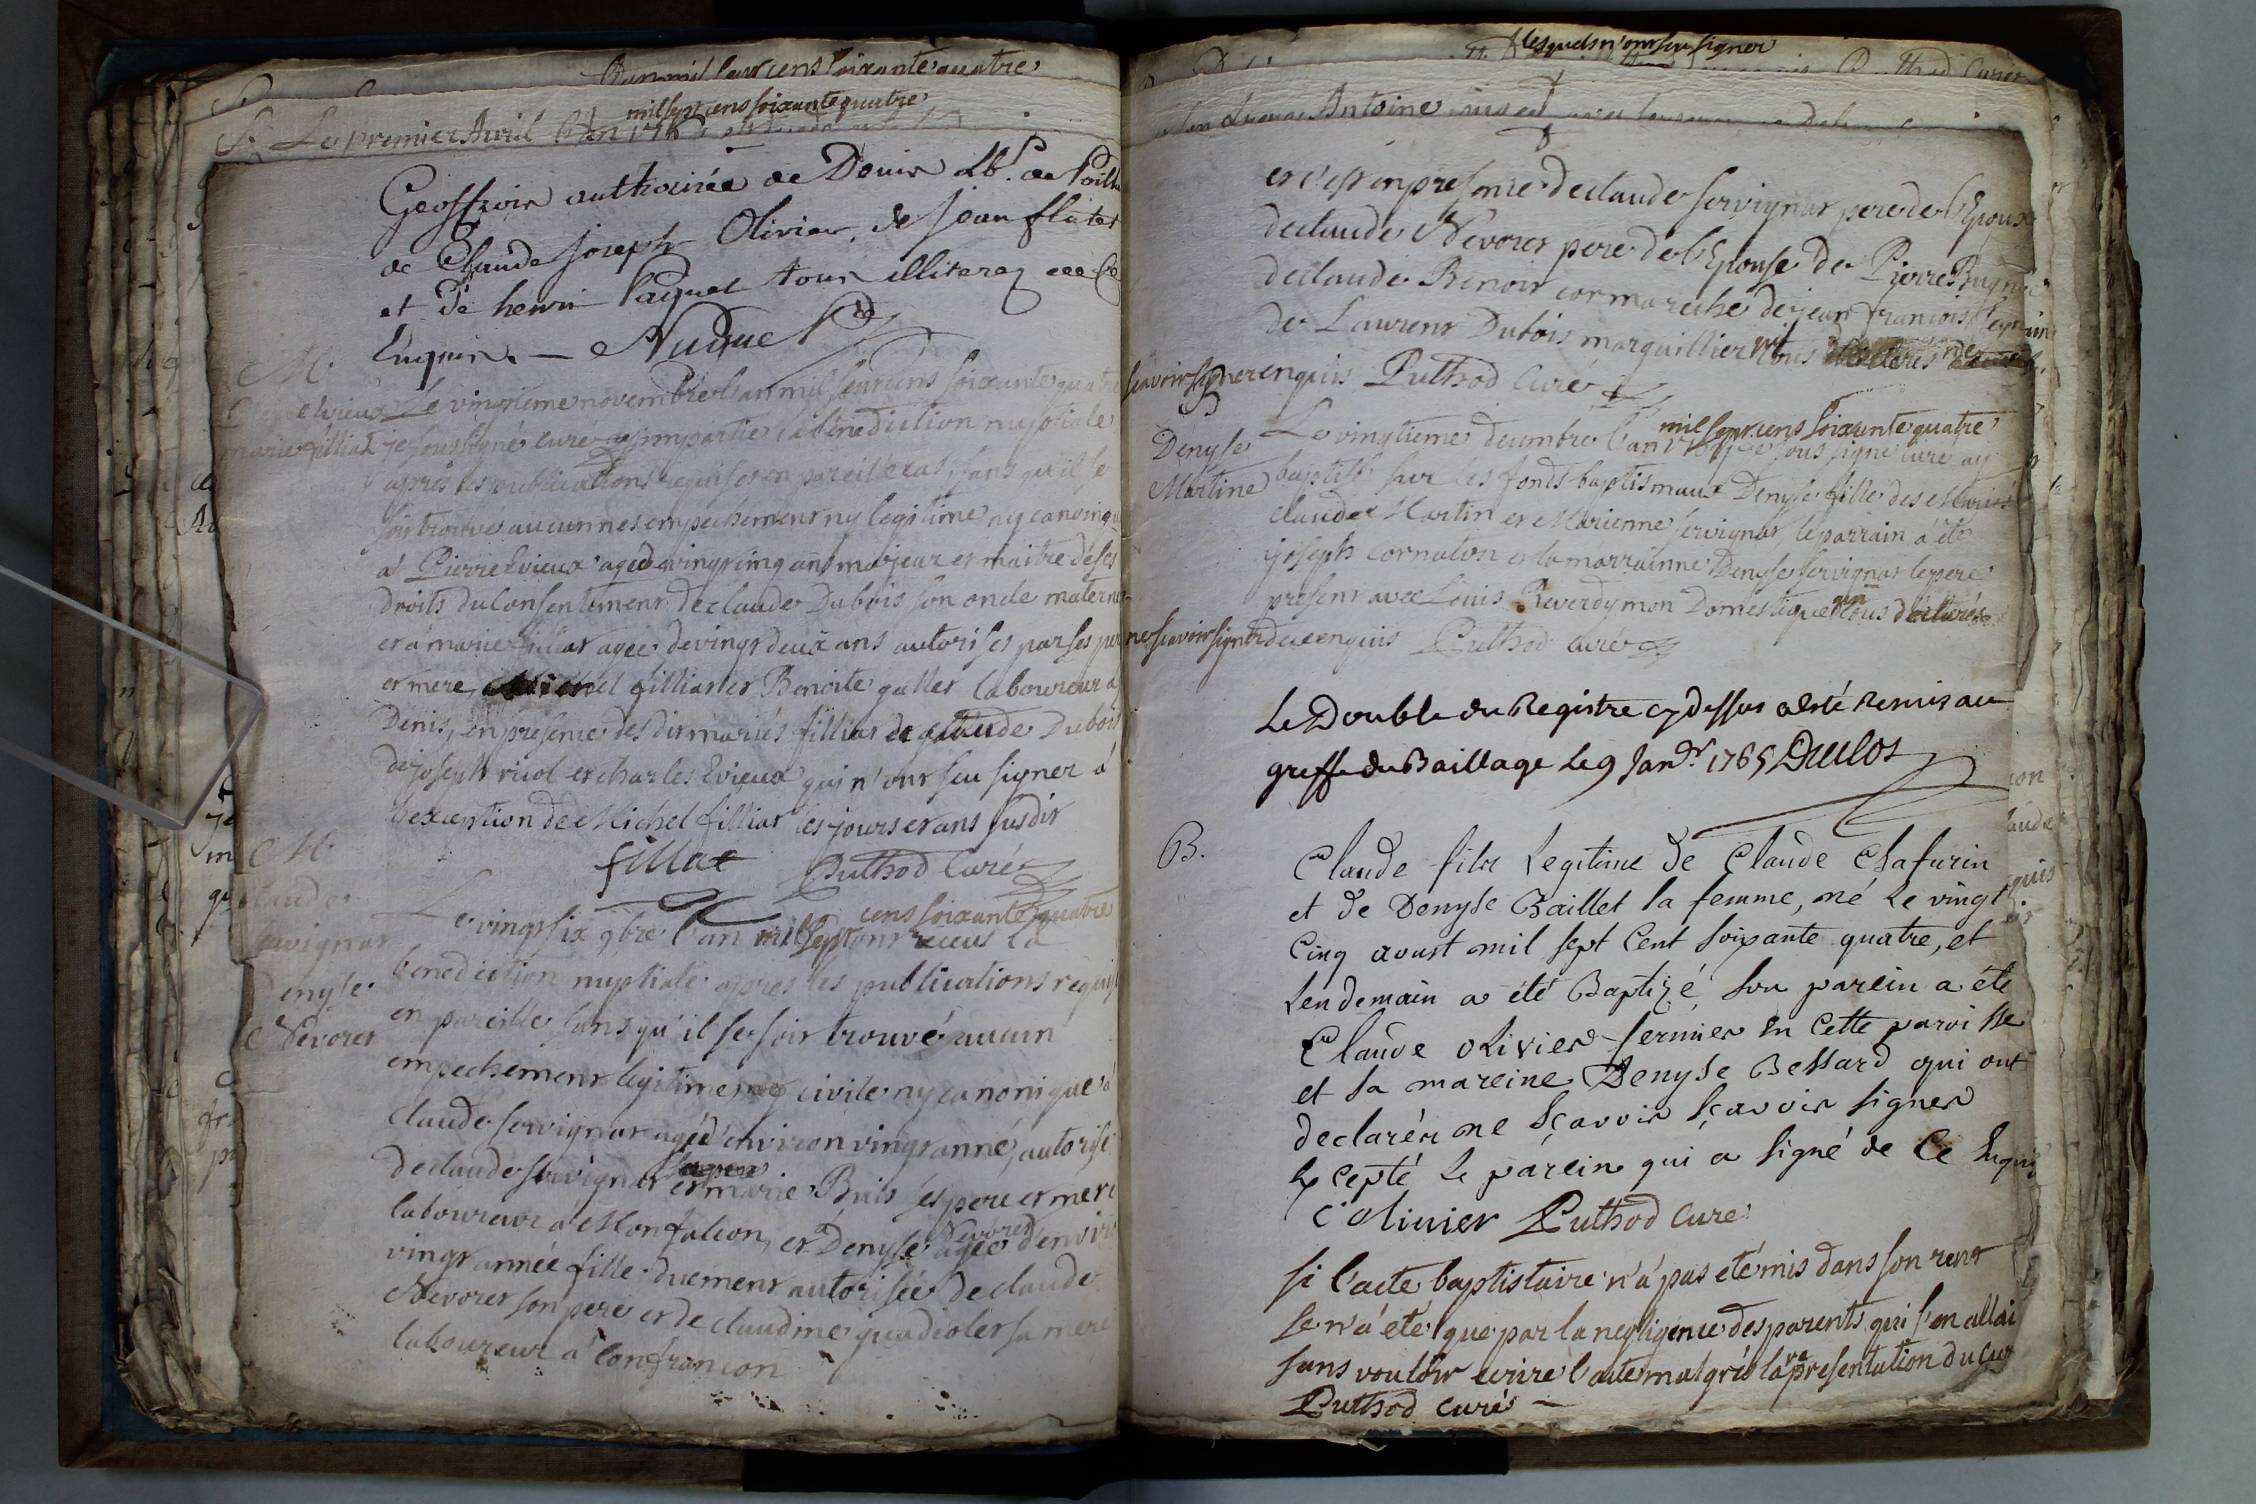 L'an mil sept cens soixante quatre
mil sept cens soixante quatre
Le premier Avril l'an
Geoffroir authorisée de Denis Lb.r de
de Claude Joseph Olivier, de Jean flutet
et de henri Paquet tous illiterez de ce
Enquis. — Nuguet
M.
Pierre Evieux
marie filliat
Le vingtieme novembre l'an mil sept cens soixante quatre
je soussigné curé ay impartie la bénédiction nuptiale
après les publications requises en pareille cas, sans qu'il se
soit trouvé aucunnes empechement ny legitime ny canonique
à Pierre Evieux agé de vingt cinq ans majeur et maitre de ses
droits du Consentement de claude Dubois son oncle maternel
et à marie filliat agée de vingt deux ans autorises par ses pere
et mere Michel filliat et Benoite gallet laboureur a
Denis, en présence des dit mariés filliat de claude Dubois
de joseph riod et charles Evieux qui n'ont seu signer à
l'exception de Michel filliat les jours et ans susdit
fillat Puthod Curé
M.
Claude
Servignat
Denyse
Nevoret
cens soixante quatre
Le vingt six 9bre l'an mil sept ont receus la
benediction nuptiale après les publications requises
en pareille sans qu'il se soit trouvé aucun
empechement legitime ny civile ny canonique à
claude servignat agé d'environ vingt année, autorisé
de claude servignat et marie Buis ses pere et mere
laboureur à Monfalcon, et Denyse Nevoret agée d'environ
vingt année fille duement autorisée de claude
Nevoret son pere et de claudine quadiolet sa mere
laboureur à Confrancon
lesquels n'ont seu signer
Antoine
et c'est en presence de claude servignat pere de l'Epoux
de claude Nevoret pere de l'Epouse de Pierre
de claude Benoit cormareche de jean francois
de Laurent Dubois marguillier qui tous declarés ne
scavoir signer enquis Puthod Curé
Denyse
Martine
mil sept cens soixante quatre
Le vingtieme decembre l'an je sous signé curé ay
baptisé sur les fonds baptismaux Denyse fille des Mariés
claude Martin et Marienne servignat, le parrain a été
joseph cornaton et la marrainne Denyse servignat le pere
present avec Louis Reverdy mon Domestique qui tous déclarés
ne scavoir signer de ce enquis Puthod curé
Le Double du Registre cy dessus a été Remis au
greffe du Baillage Le 9 Janv.r 1765 Duclos
B.
Claude fils Legitime de Claude Chafurin
et de Denyse Baillet la femme, né Le vingt
Cinq avoust mil sept Cent Soixante quatre, et
Lendemain a été Baptizé Son parein a été
Claude Olivier fermier en Cette paroisse
et Sa mareine Denyse Bessard qui ont
declarér ne Sçavoir Sçavoir Signer
Excepté Le parein qui a Signé de Ce Enquis
C olivier Puthod Curé
si l'acte baptistaire n'a pas eté mis dans son rent
se n'a eté que par la negligence des parents qui s'en allai
sans vouloir ecrire l'acte malgrés la representation du Cur
Puthod Curé —